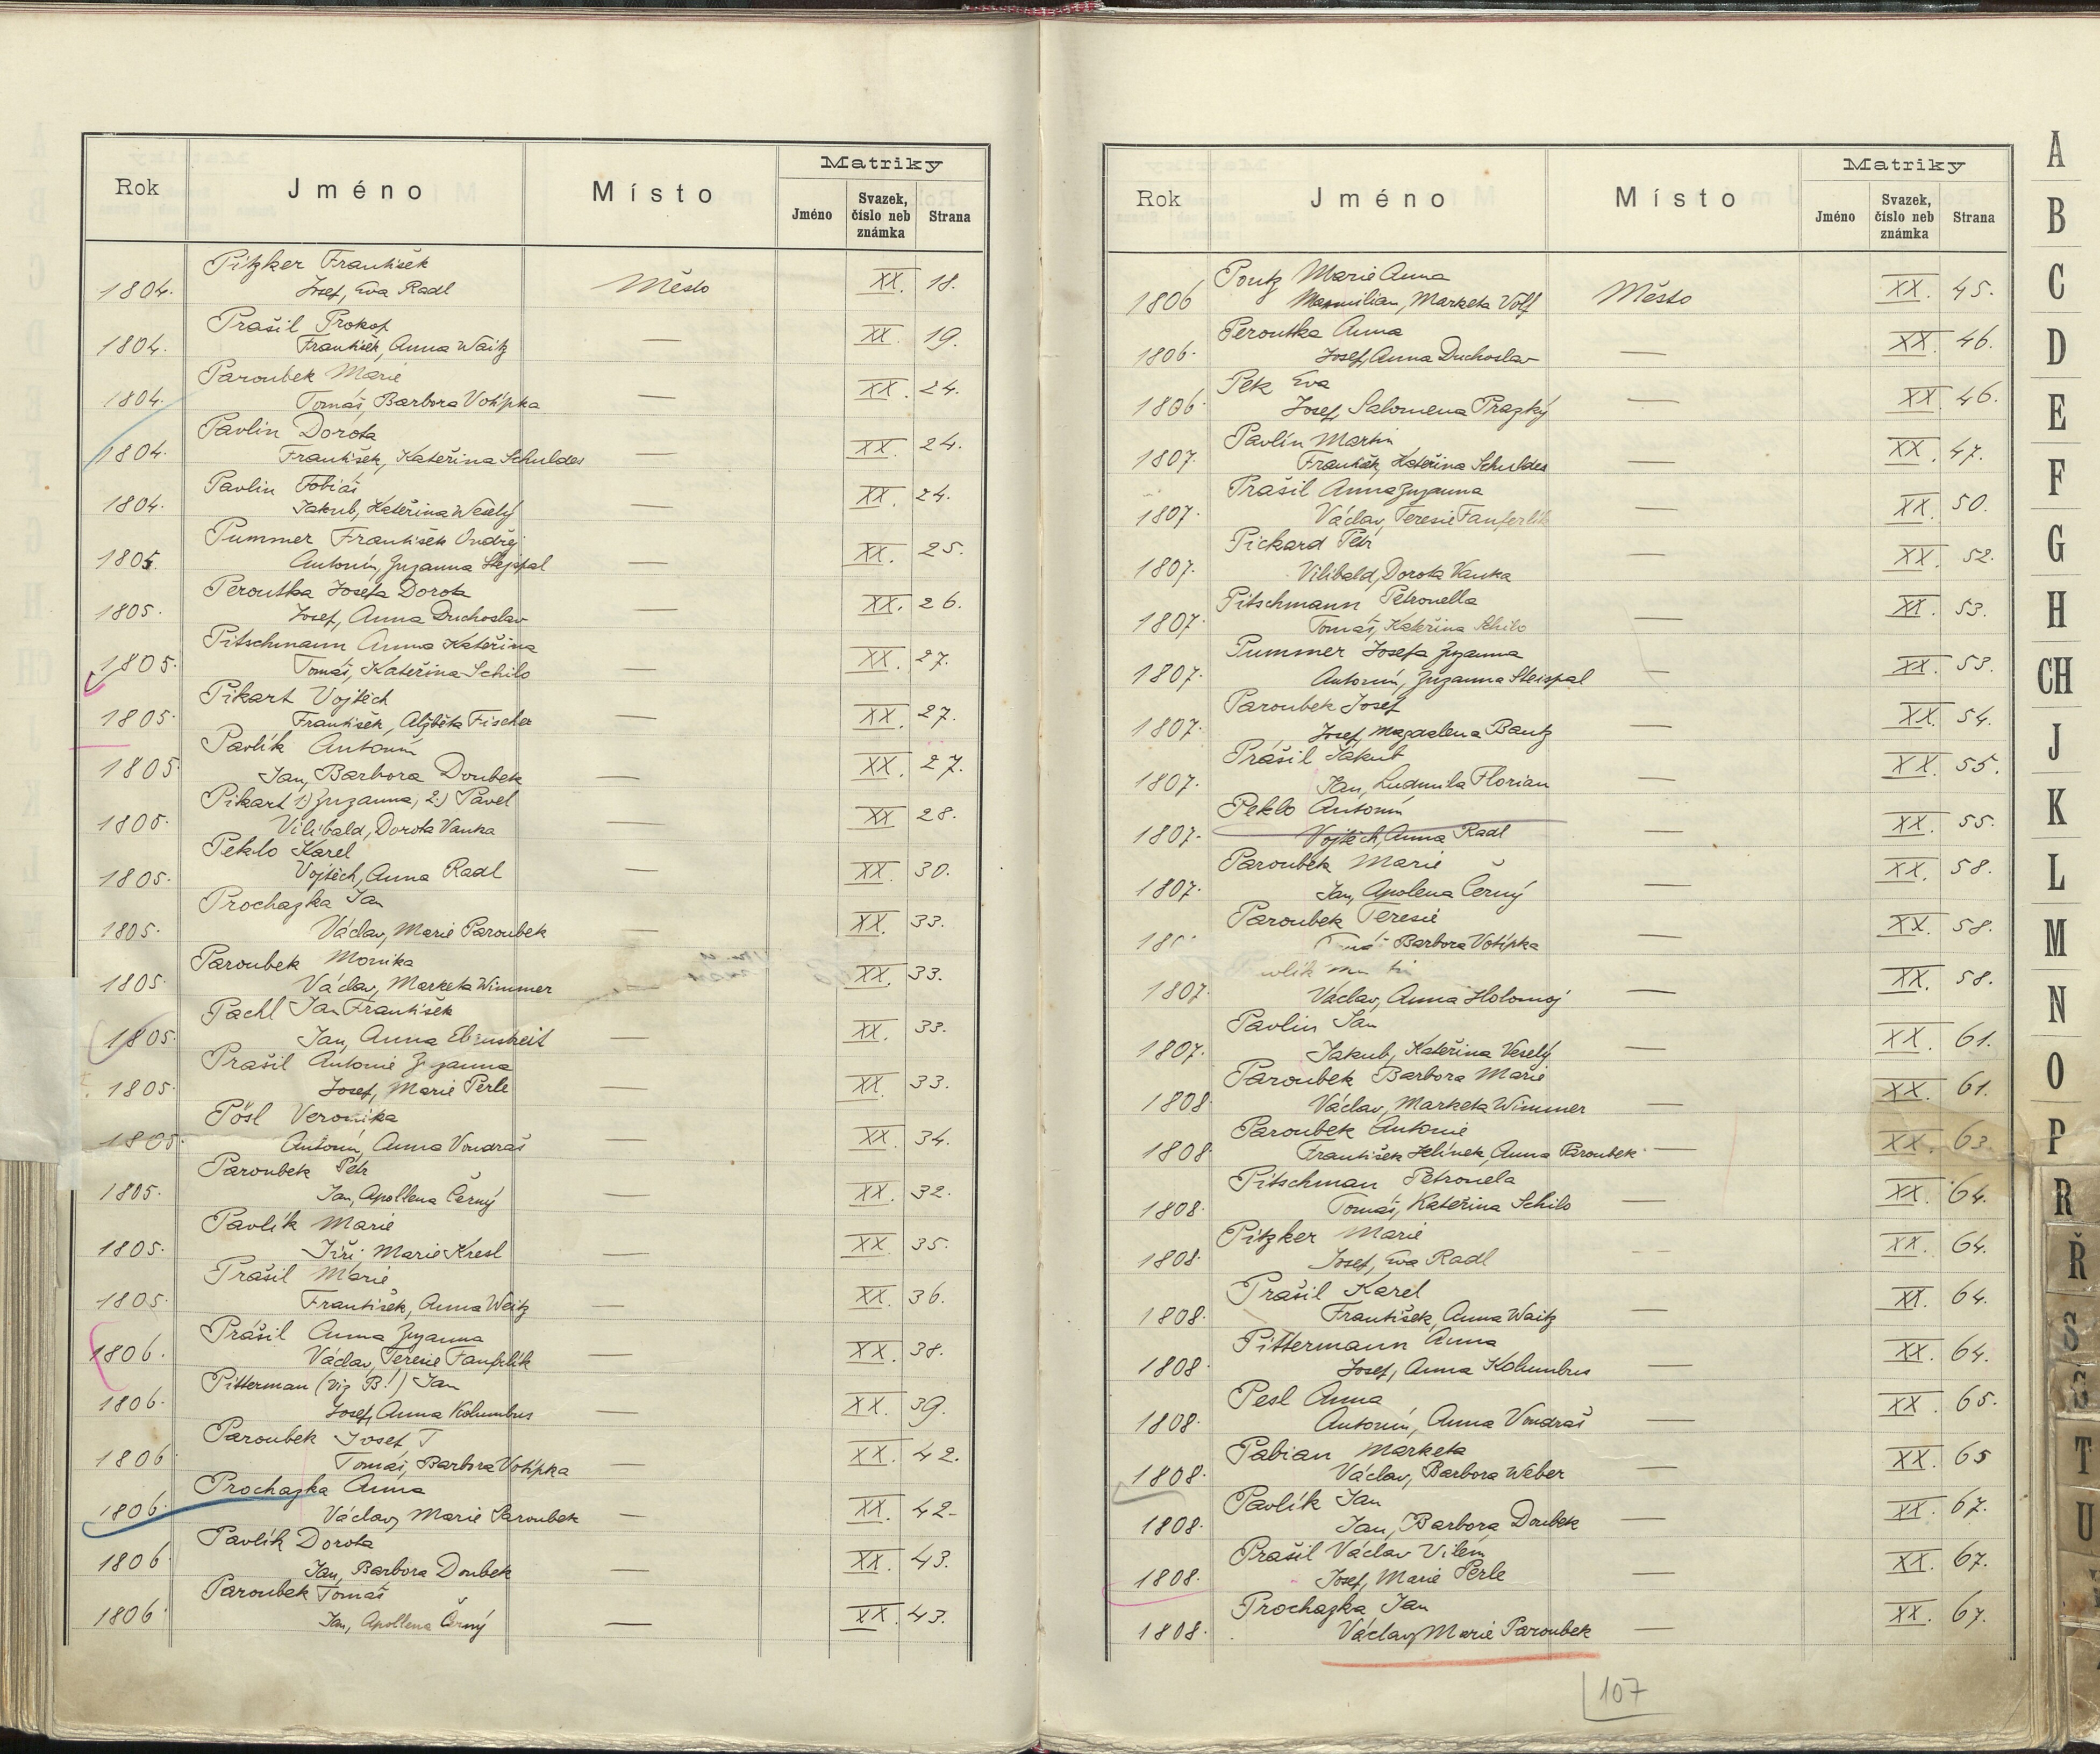 Matriky
Rok Jméno Místo Jméno Svazek, číslo neb známka Strana
Pitzker František
1804. Josef, Eva Radl Město XX. 18.
Prašil Prokop
1804. František, Anna Waitz — XX. 19.
Paroubek Marie
1804. Tomáš, Barbora Votípka — XX. 24.
Pavlin Dorota
1804. František, Kateřina Schuldes — XX. 24.
Pavlin Tobiáš
1804. Jakub, Kateřina Weselý — XX. 24.
Pummer František Ondřej
1805. Antonín, Zuzanna — XX. 25.
Peroutka Josefa Dorota
1805. Josef, Anna Duchoslav — XX. 26.
Pitschmann Anna Kateřina
1805. Tomáš, Kateřina Schilo — XX. 27.
Pikart Vojtěch
1805. František, Alžběta Fischer — XX. 27.
Pavlík Antonín
1805 Jan, Barbora Doubek — XX. 27.
Pikart 1.) Zuzanna, 2.) Pavel
1805. Vilibald, Dorota Vanka — XX 28.
Peklo Karel
1805. Vojtěch, Anna Radl — XX. 30.
Prochazka Jan
1805. Václav, Marie Paroubek — XX. 33.
Paroubek Monika
1805. Václav, Marketa Wimmer XX. 33.
Pachl Jan František
1805. Jan, Anna — XX. 33.
Prašil Antonie Zuzanna
1805. Josef, Marie Perle — XX. 33.
Pösl Veronika
1805. Antonín, Anna Vondraš — XX. 34.
Paroubek Petr
1805. Jan, Apollena Černý — XX. 32.
Pavlík Marie
1805. Jiří Marie Kresl — XX 35.
Prašil Marie
1805. František, Anna Weitz — XX. 36.
Prášil Anna Zuzanna
1806. Václav, Teresie Fanfrlík — XX. 38.
Pitterman (viz B!) Jan
1806. Josef, Anna Kolumbus — XX. 39.
Paroubek Josef T
1806 Tomáš, Barbora Votípka — XX. 42.
Prochazka Anna
1806. Václav, Marie Paroubek — XX. 42.
Pavlík Dorota
1806 Jan, Barbora Doubek — XX. 43.
Paroubek Tomáš
1806. Jan, Apollena Černý — XX. 43.
Matriky
Rok Jméno Místo Jméno Svazek, číslo neb známka Strana
Poutz Marie Anna
1806 Maxmilian, Marketa Volf Město XX. 45.
Peroutka Anna
1806. Josef, Anna Duchoslav — XX. 46.
Pek Eva
1806. Josef, Salomena Prazký — XX. 46.
Pavlín Martin
1807. František, Kateřina Schuldes — XX. 47.
Prašil Anna Zuzanna
1807. Václav, Teresie Fanferlik — XX. 50.
Pickard Petr
1807. Vilibald, Dorota Vanka — XX. 52.
Pitschmann Petronella
1807. Tomáš, Kateřina Schilo — XX. 53.
Pummer Josefa Zuzanna
1807. Antonín, Zuzanna Steispal — XX. 53.
Paroubek Josef
1807. Josef, Magdalena Bautz — XX. 54.
Prášil Jakub
1807. Jan, Ludmila Florian — XX. 55.
Peklo Antonín
1807. Vojtěch, Anna Radl — XX. 55.
Paroubek Marie
1807. Jan, Apolena Černý — XX. 58.
Paroubek Teresie
Barbora Votípka — XX. 58.
1807. Václav, Anna Holomoj — XX. 58.
Pavlin Jan
1807. Jakub, Kateřina Veselý — XX. 61.
Paroubek Barbora Marie
1808. Václav, Marketa Wimmer — XX. 61.
Paroubek Antonie
1808. František Jelínek, Anna Paroubek — XX. 63.
Pitschman Petronela
1808. Tomáš, Kateřina Schilo — XX. 64.
Pitzker Marie
1808. Josef, Eva Radl — XX. 64.
Prašil Karel
1808. František, Anna Waitz — XX. 64.
Pittermann Anna
1808. Josef, Anna Kolumbus — XX. 64.
Pesl Anna
1808. Antonín, Anna Vondraš — XX. 65.
Pabian Marketa
1808. Václav, Barbora Weber — XX. 65
Pavlík Jan
1808. Jan, Barbora Doubek — XX. 67.
Prašil Václav Vilém
1808. Josef, Marie Perle — XX. 67.
Prochazka Jan
1808. Václav, Marie Paroubek — XX. 67.
107
A
B
C
D
E
F
G
H
CH
J
K
L
M
N
O
P
R
Ř
S
Š
T
U